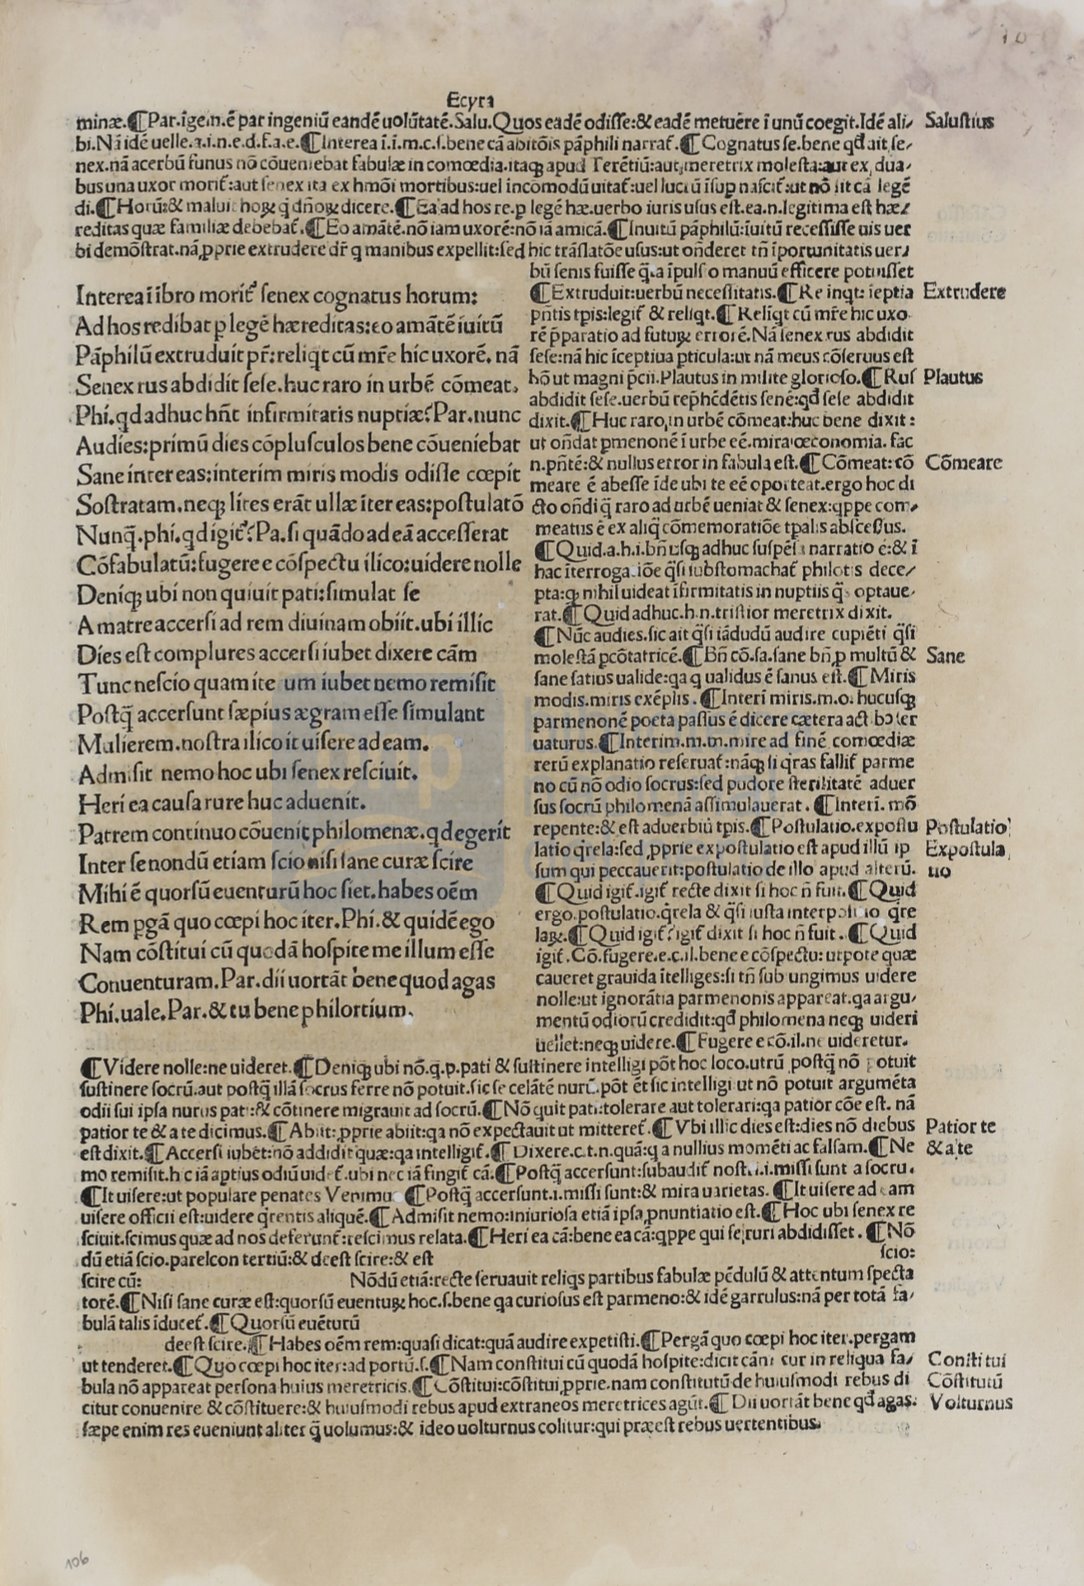 Ecyra
minæ.¶Par.īgem.ē par ingeniū eandē uolūtatē.Salu.Quos eadē odisse:& eadē metuēre ī unū coegit.Idē ali/
Salustius
bi.Nā idē uelle.a.i.n.e.d.f.a.e.¶Interea ī.i.m.c.s.bene cā abitōis pāphili narrat̄.¶Cognatus se.bene qđ ait se/
nex.nā acerbū funus nō cōueniebat fabulæ in comœdia.itaqꝫ apud Terētiū:aut meretrix molesta:aut ex dua/
bus una uxor morit̄:aut senex ita ex hmōi mortibus:uel incomodū uitat̄:uel lucrū īsup nascit̄:ut nō sit cā legē
di.¶Horū:& maluit hoꝝ q̄ dn̄oꝝ dicere.¶Ea ad hos re.p legē hæ.uerbo iuris usus est.ea.n.legitima est hæ/
reditas quæ familiæ debebat̄.¶Eo amātē.nō iam uxorē:nō iā amicā.¶Inuitū pāphilū:iuitū recessisse uis uer
bi demōstrat.nā ꝓprie extrudere dr̄ q manibus expellit:sed hic trāslatōe usus:ut on̄deret tn̄ īportunitatis uer/
bū senis fuisse q̄.a īpulso manuū efficere potuisset
Interea ī ibro morit̄ senex cognatus horum:
Ad hos redibat p legē hæreditas:eo amātē īuitū
Pāphilū extruduit pr̄:reliqt cū mr̄e hic uxorē. nā
Senex rus abdidit sese.huc raro in urbē cōmeat.
Phi.qd adhuc hn̄t infirmitatis nuptiæ?Par.nunc
Audies:primū dies cōplusculos bene cōueniebat
Sane inter eas:interim miris modis odisse cœpit
Sostratam.neqꝫ lites erāt ullæ iter eas:postulatō
Nunq̄.phi.qd igit̄?Pa.si quādo ad eā accesserat
Cōfabulatū:fugere e cōspectu ilico:uidere nolle
Deniqꝫ ubi non quiuit pati:simulat se
A matre accersi ad rem diuinam obiit.ubi illic
Dies est complures accersi iubet dixere cām
Tunc nescio quam ite um iubet nemo remisit
Postq̄ accersunt sæpius ægram esse simulant
Mulierem.nostra ilico it uisere ad eam.
Admisit nemo hoc ubi senex resciuit.
Heri ea causa rure huc aduenit.
Patrem continuo cōuenit philomenæ.qd egerit
Inter se nondū etiam scio nisi sane curæ scire
Mihi ē quorsū euenturū hoc siet.habes oēm
Rem pgā quo cœpi hoc iter.Phi.& quidē ego
Nam cōstitui cū quodā hospite me illum esse
Conuenturam.Par.dii uortāt bene quod agas
Phi.uale.Par.& tu bene philortium.
¶Extruduit:uerbū necessitatis.¶Re inqt: īeptia
Extrudere
pn̄tis tpis:legit̄ & reliqt.¶Reliqt cū mr̄e hic uxo
rē p̄paratio ad futuꝝ errorē.Nā senex rus abdidit
sese:nā hic īceptiua pticula:ut nā meus cōseruus est
hō ut magni p̄cii.Plautus in milite glorioso.¶Rus
Plautus
abdidit sese.uerbū rep̄hēdētis senē:qđ sese abdidit
dixit.¶Huc raro in urbē cōmeat:huc bene dixit:
ut on̄dat pmenonē ī urbe eē.mira œconomia. fac
n.pn̄tē:& nullus error in fabula est.¶Cōmeat:cō
Cōmeare
meare ē abesse īde ubi te eē oporteat.ergo hoc di
cto on̄di q̄ raro ad urbē ueniat & senex:qppe com/
meatus ē ex aliq cōmemoratiōe tpalis abscessus.
¶Quid.a.h.i.bn̄ usqꝫ adhuc suspēsa narratio ē:& ī
hac īterrogatiōe q̄si substomachat̄ philotis dece/
pta:q nihil uideat īfirmitatis in nuptiis q̄ optaue/
rat.¶Quid adhuc.h.n.tristior meretrix dixit.
¶Nūc audies.sic ait q̄si iādudū audire cupiēti q̄si
molestā pcōtatricē.¶Bn̄ cō.sa.sane bn̄ ꝓ multū &
Sane
sane satius ualide:qa q ualidus ē sanus est.¶Miris
modis.miris exēplis.¶Interī miris.m.o.hucusqꝫ
parmenonē poeta passus ē dicere cætera act
uaturus.¶Interim.m.m.mire ad finē comœdiæ
rerū explanatio reseruat̄:nāqꝫ si q̄ras fallit̄ parme
no cū nō odio socrus:sed pudore sterilitatē aduer
sus socrū philomenā assimulauerat.¶Interī. mō
repente:& est aduerbiū tpis.¶Postulatio.expostu
Postulatio
latio q̄rela:sed ꝓprie expostulatio est apud illū ip
Expostula
sum qui peccauerit:postulatio de illo apud alterū.
tio
¶Quid igit̄.igit̄ recte dixit si hoc n̄ fuit.¶Quid
ergo.postulatio.q̄rela & q̄si iusta interpositio q̄re
laꝝ.¶Quid igit̄?igit̄ dixit si hoc n̄ fuit.¶Quid
igit̄.Cō.fugere.e.c.il.bene e cōspectu:utpote quæ
caueret grauida ītelliges:si tn̄ sub ungimus uidere
nolle:ut ignorātia parmenonis appareat.qa argu/
mentū odiorū credidit:qđ philomena neqꝫ uideri
uellet:neqꝫ uidere.¶Fugere e cō.il.ne uideretur.
¶Videre nolle:ne uideret.¶Deniqꝫ ubi nō.q.p.pati & sustinere intelligi pōt hoc loco.utrū postq̄ nō potuit
sustinere socrū.aut postq̄ illā socrus ferre nō potuit.sic se celātē nurū.pōt ēt sic intelligi ut nō potuit argumēta
odii sui ipsa nurus pati:& cōtinere migrauit ad socrū.¶Nō quit pati:tolerare aut tolerari:qa patior cōe est. nā
patior te & a te dicimus.¶Abiit:ꝓprie abiit:qa nō expectauit ut mitteret̄.¶Vbi illic dies est:dies nō diebus
Patior te
est dixit.¶Accersi iubēt:nō addidit quæ:qa intelligit̄.¶Dixere.c.t.n.quā:qa nullius momēti ac falsam.¶Ne
& a te
mo remisit.hic iā aptius odiū uidet̄.ubi nec iā fingit̄ cā.¶Postq̄ accersunt:subaudit̄ nost..i.missi sunt a socru.
¶It uisere:ut populare penates Venimu ¶Postq̄ accersunt.i.missi sunt:& mira uarietas.¶It uisere ad eam
uisere officii est:uidere q̄rentis aliquē.¶Admisit nemo:iniuriosa etiā ipsa ꝓnuntiatio est.¶Hoc ubi senex re
sciuit.scimus quæ ad nos deferunt̄:rescimus relata.¶Heri ea cā:bene ea cā:qppe qui se ruri abdidisset.¶Nō
dū etiā scio.parelcon tertiū:& deest scire:& est
scio:
scire cū:
Nōdū etiā:recte seruauit reliqs partibus fabulæ pēdulū & attentum specta
torē.¶Nisi sane curæ est:quorsū euentuꝝ hoc.s.bene qa curiosus est parmeno:& idē garrulus:nā per totā fa/
bulā talis īducet̄.¶Quorsū euēturū
deest scire.¶Habes oēm rem:quasi dicat:quā audire expetisti.¶Pergā quo cœpi hoc iter.pergam
ut tenderet.¶Quo cœpi hoc iter:ad portū.s.¶Nam constitui cū quodā hospite:dicit cām cur in reliqua fa/
Constitui
bula nō appareat persona huius meretricis.¶Cōstitui:cōstitui ꝓprie.nam constitutū de huiusmodi rebus di
Cōstitutū
citur conuenire & cōstituere:& huiusmodi rebus apud extraneos meretrices agūt.¶Dii uortāt bene qđ agas.
Volturnus
sæpe enim res eueniunt aliter q̄ uolumus:& ideo uolturnus colitur:qui præest rebus uertentibus.
106